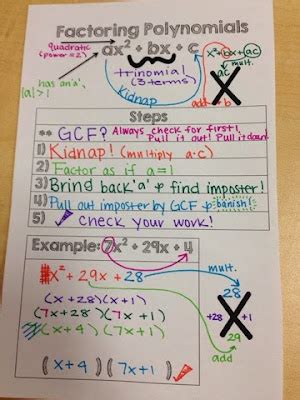 Factoring Polynomials
quadratic
(power = 2)
ax² + bx + c
x² + bx + ac
mult.
ac
add → b
has an 'a',
|a| > 1
trinomial
(3 terms)
kidnap
Steps
** GCF? Always check for first!
Pull it out! Pull it down!
1) Kidnap! (multiply a·c)
2) Factor as if a = 1
3) Bring back 'a' & find imposter!
4) Pull out imposter by GCF & banish!
5) ✓ Check your work!
Example: 7x² + 29x + 4
x² + 29x + 28
mult.
28
+28 +1
29
add
(x + 28)(x + 1)
(7x + 28)(7x + 1)
(x + 4)(7x + 1)
(x + 4)(7x + 1) ✓